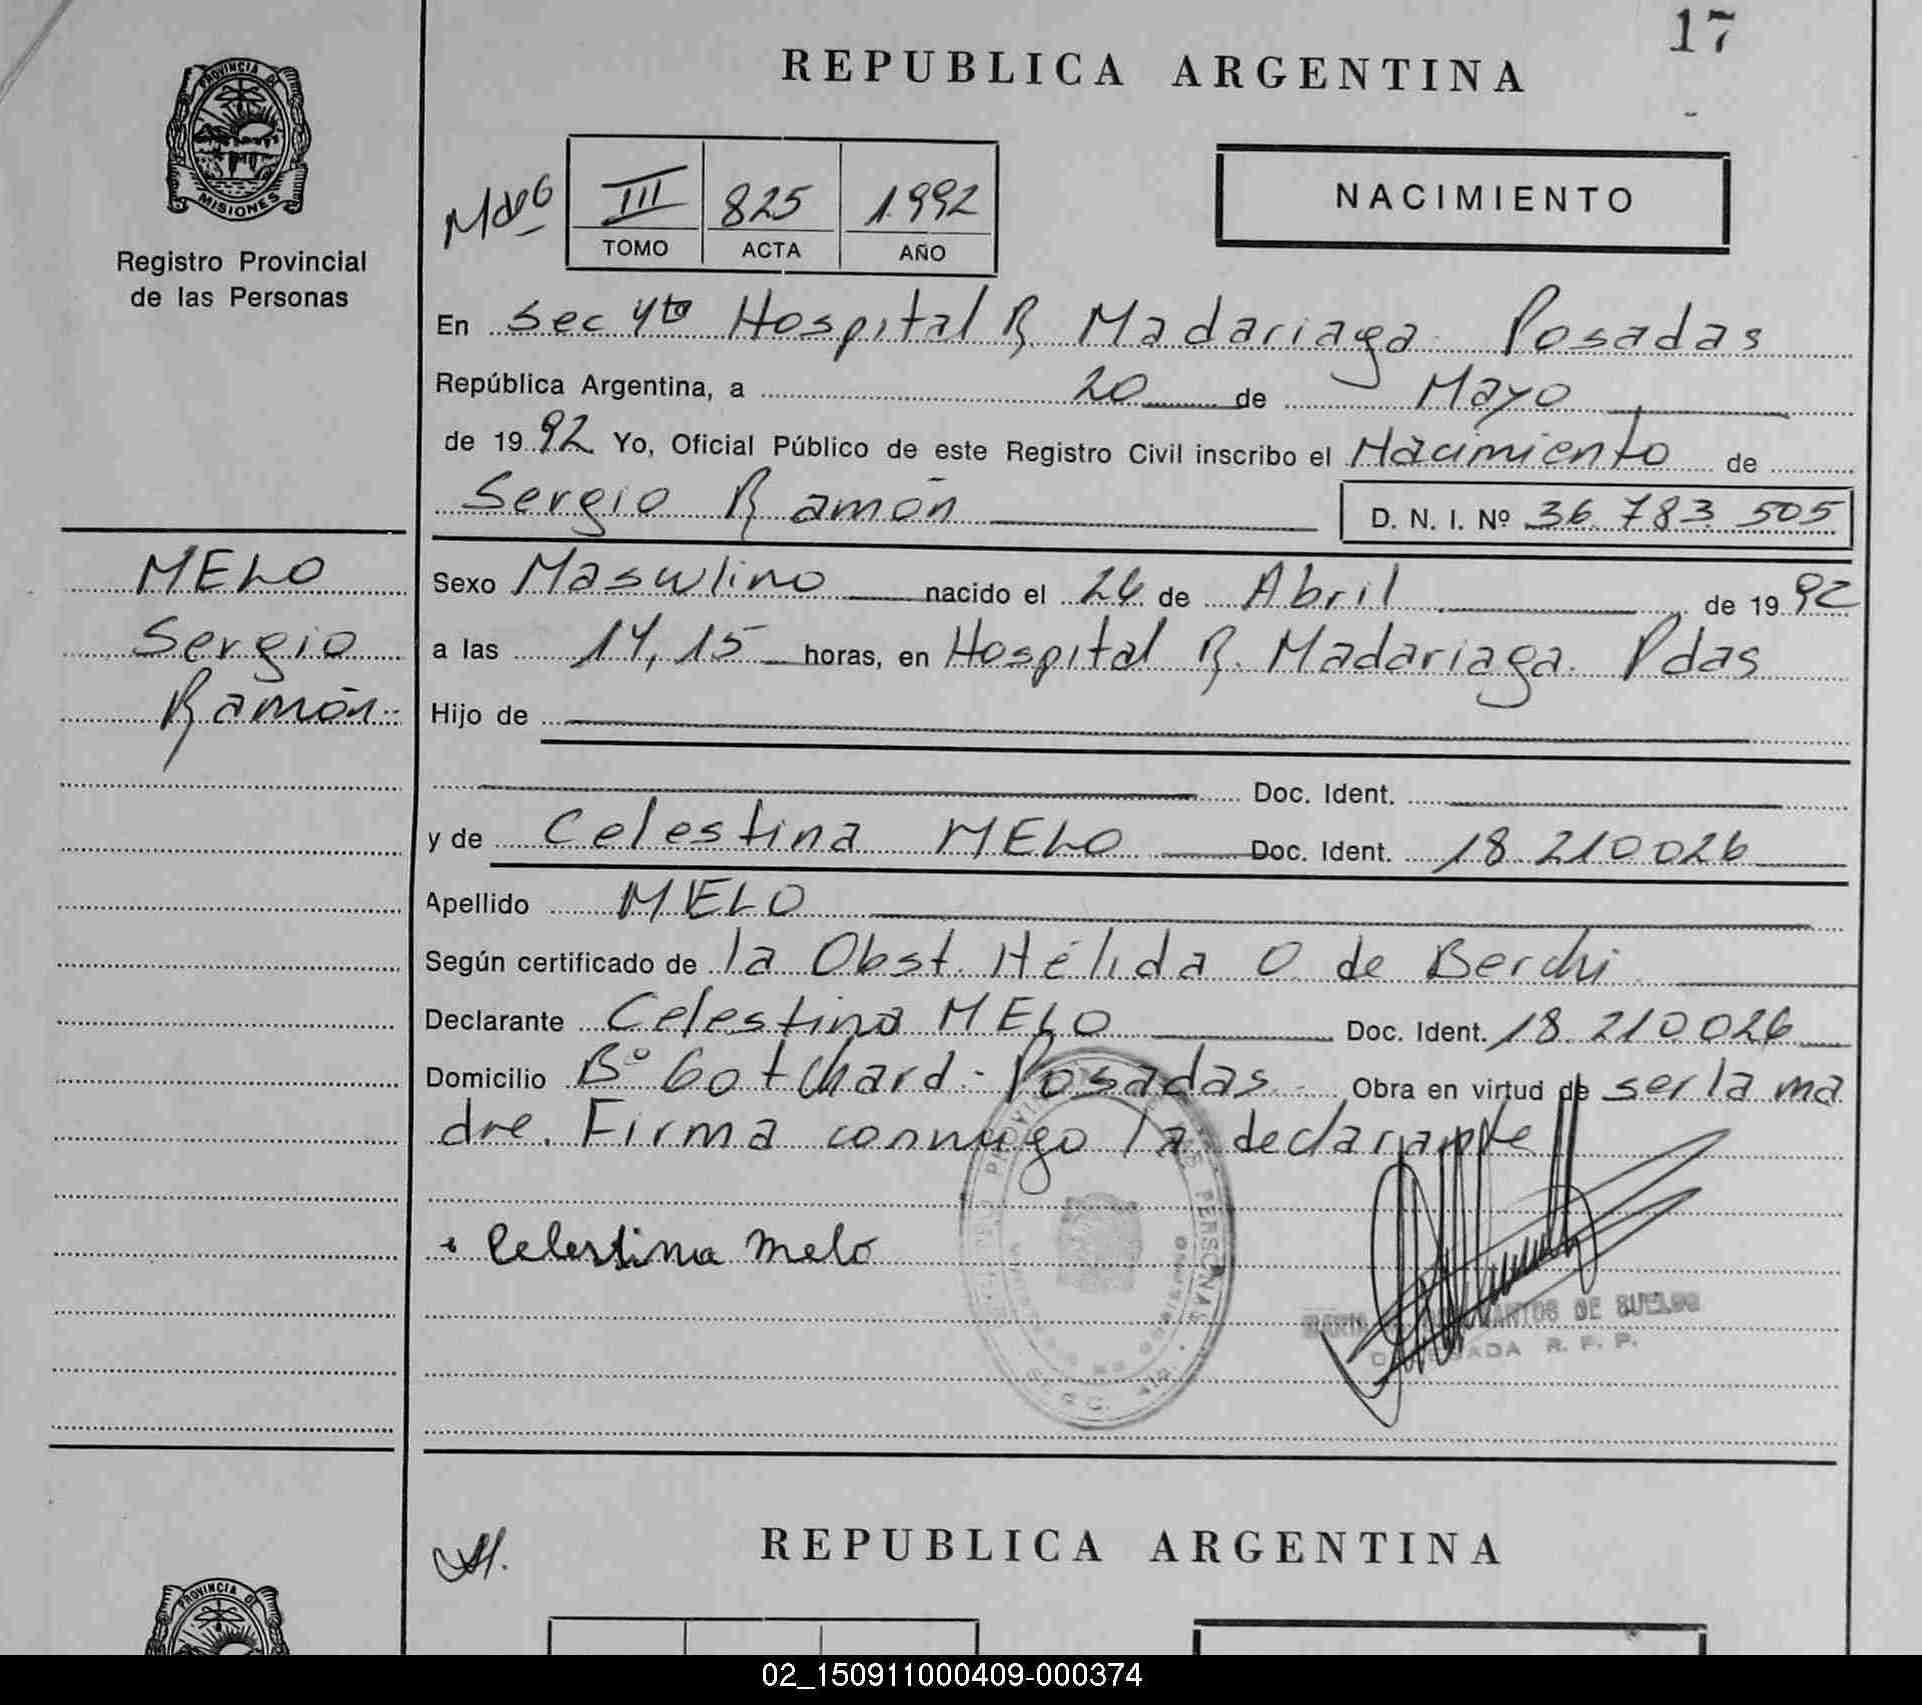 17
REPUBLICA ARGENTINA
PROVINCIA DE
MISIONES
Registro Provincial
de las Personas
III 825 1992
TOMO ACTA AÑO
NACIMIENTO
En Sec 4ta Hospital R. Madariaga Posadas
República Argentina, a 20 de Mayo
de 1992 Yo, Oficial Público de este Registro Civil inscribo el Nacimiento de
Sergio Ramón D. N. I. Nº 36 783 505
MELO
Sergio
Ramón
Sexo Masculino nacido el 26 de Abril de 1992
a las 14,15 horas, en Hospital R. Madariaga. Pdas
Hijo de
Doc. Ident.
y de Celestina MELO Doc. Ident. 18.210026
Apellido MELO
Según certificado de la Obst. Hélida O. de Berchi
Declarante Celestina MELO Doc. Ident. 18.210026
Domicilio Bº Gotchard - Posadas Obra en virtud de ser la ma
dre. Firma conmigo la declarante
Celestina Melo
SANTOS DE
DELEGADA R. P. P.
REPUBLICA ARGENTINA
PROVINCIA DE
02_150911000409-000374